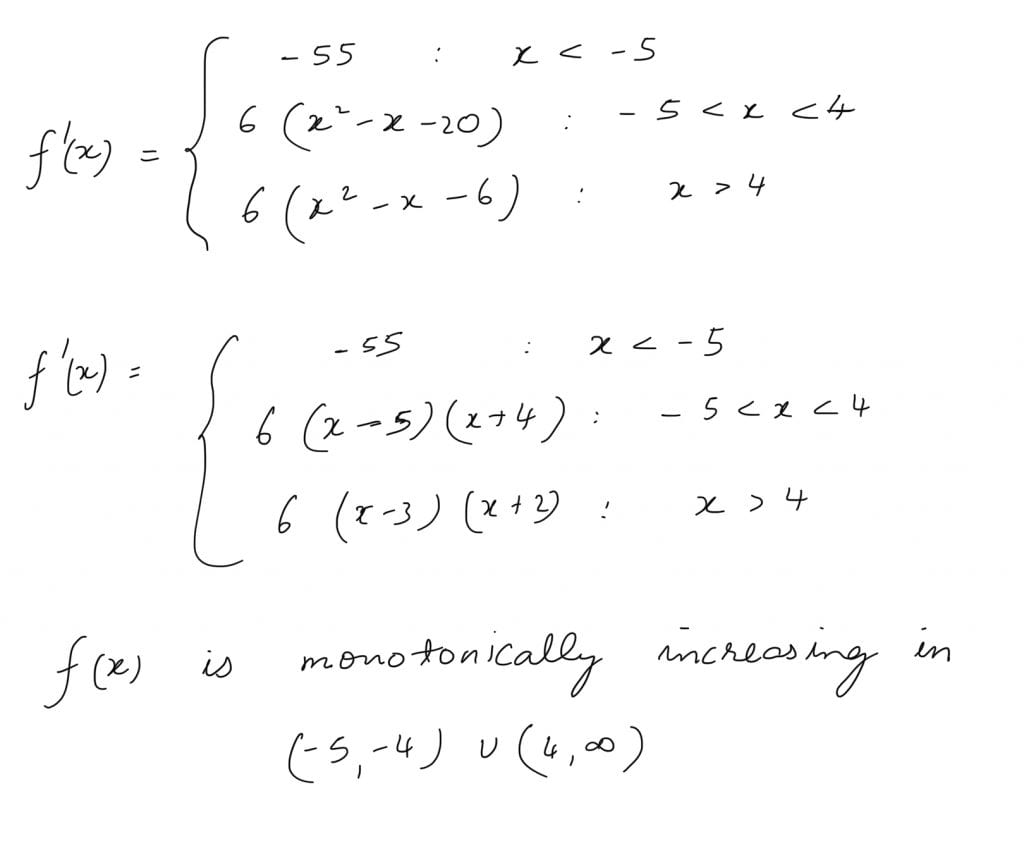 f'(x) = { -55 : x < -5
6 (x² - x - 20) : -5 < x < 4
6 (x² - x - 6) : x > 4
f'(x) = { -55 : x < -5
6 (x - 5) (x + 4) : -5 < x < 4
6 (x - 3) (x + 2) : x > 4
f(x) is monotonically increasing in
(-5, -4) ∪ (4, ∞)